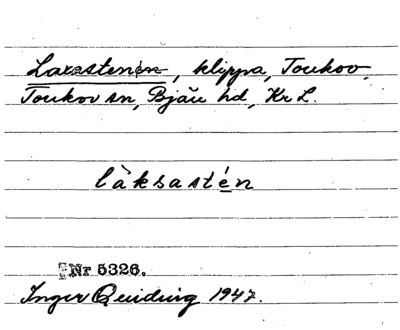 Laxastenen, klippa, Toukov,
Toukov sn, Bjäu hd, Kr L.
làksasté̲n
Nr 5326.
Inger Quiding 1947.